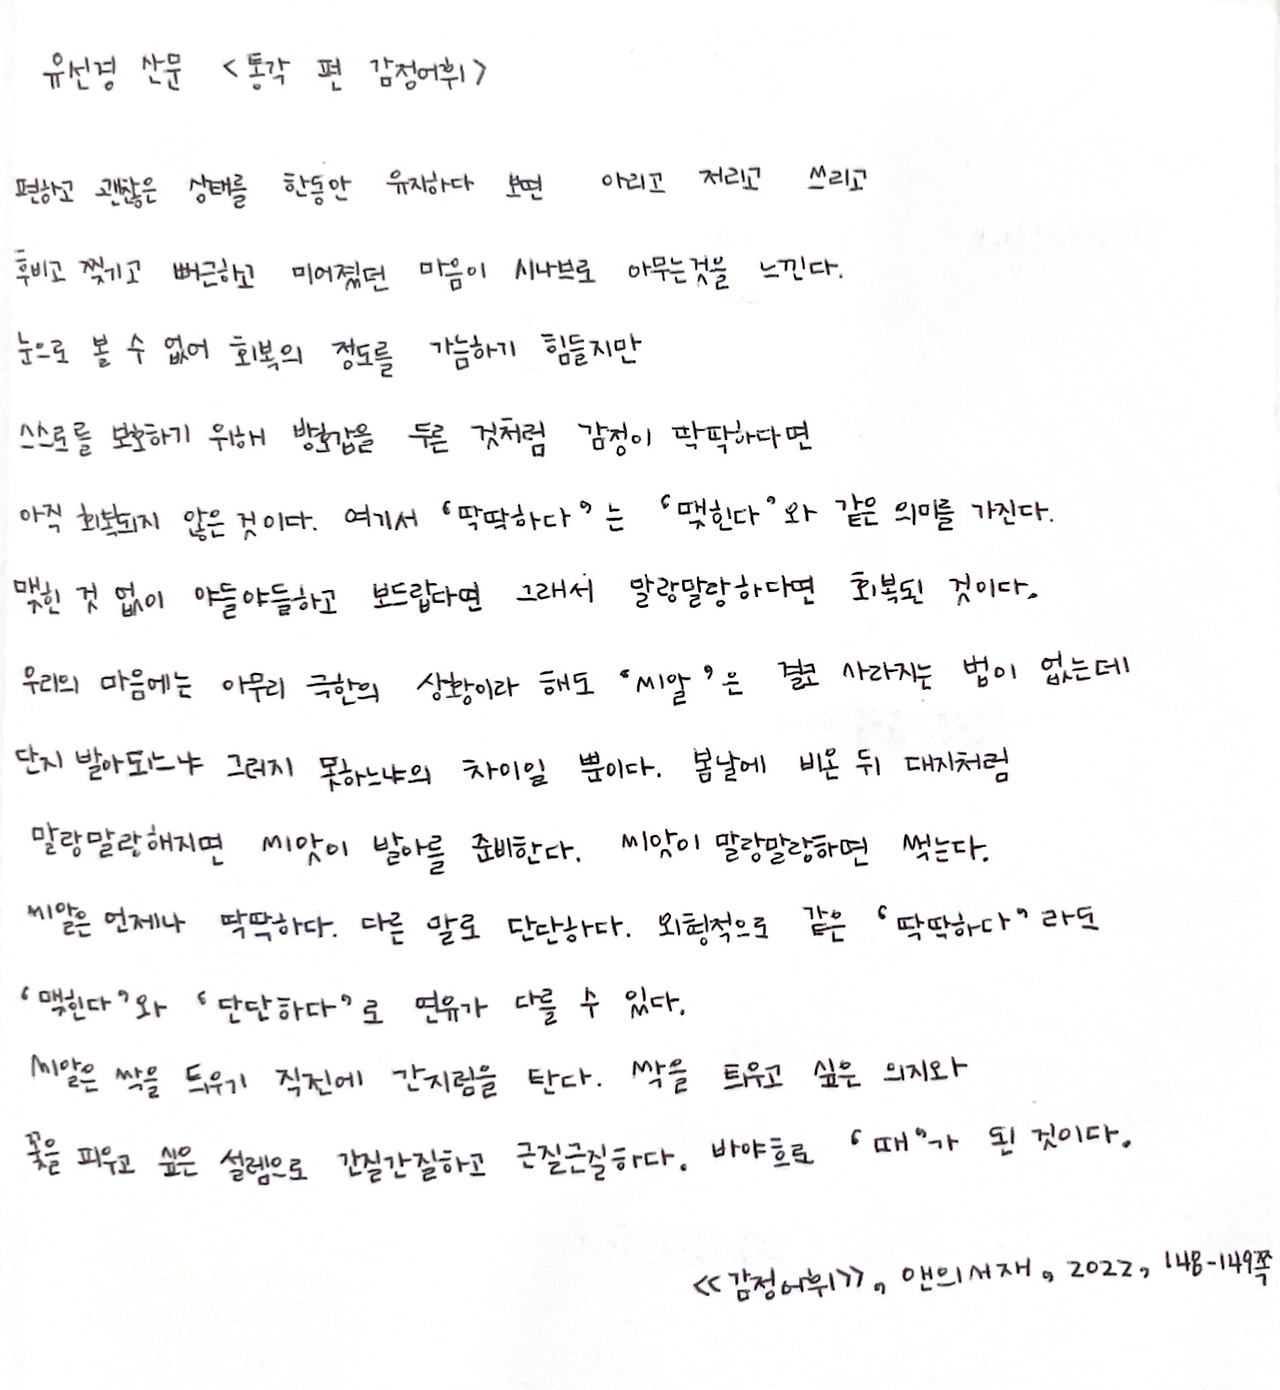 유선경 산문 <통각 편 감정어휘>
편하고 괜찮은 상태를 한동안 유지하다 보면 아리고 저리고 쓰리고
후비고 찢기고 뻐근하고 미어졌던 마음이 시나브로 아무는것을 느낀다.
눈으로 볼 수 없어 회복의 정도를 가늠하기 힘들지만
스스로를 보호하기 위해 방호갑을 두른 것처럼 감정이 딱딱하다면
아직 회복되지 않은 것이다. 여기서 ‘딱딱하다’는 ‘맺힌다’와 같은 의미를 가진다.
맺힌 것 없이 야들야들하고 보드랍다면 그래서 말랑말랑하다면 회복된 것이다.
우리의 마음에는 아무리 극한의 상황이라 해도 ‘씨알’은 결코 사라지는 법이 없는데
단지 발아되느냐 그러지 못하느냐의 차이일 뿐이다. 봄날에 비온 뒤 대지처럼
말랑말랑해지면 씨앗이 발아를 준비한다. 씨앗이 말랑말랑하면 썩는다.
씨알은 언제나 딱딱하다. 다른 말로 단단하다. 외형적으로 같은 ‘딱딱하다’라도
‘맺힌다’와 ‘단단하다’로 연유가 다를 수 있다.
씨알은 싹을 틔우기 직전에 간지럼을 탄다. 싹을 틔우고 싶은 의지와
꽃을 피우고 싶은 설렘으로 간질간질하고 근질근질하다. 바야흐로 ‘때’가 된 것이다.
<<감정어휘>>, 앤의서재, 2022, 148-149쪽